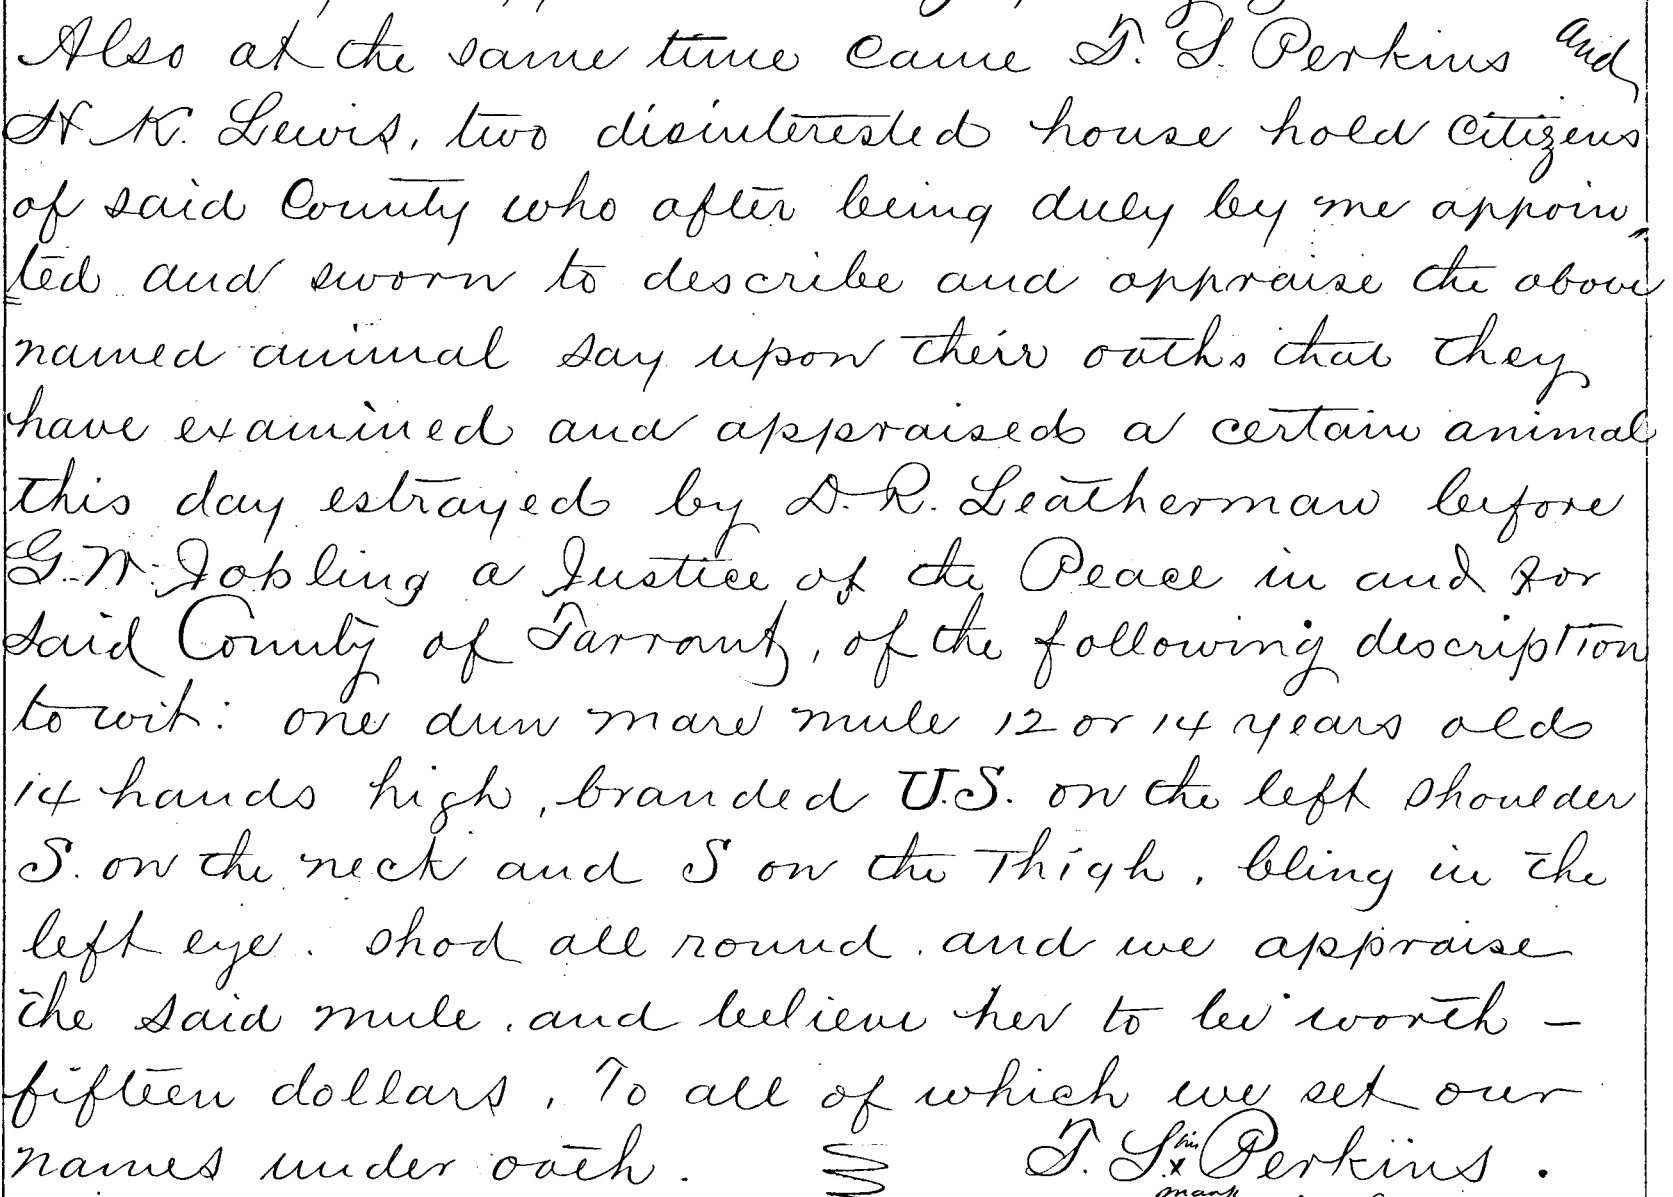 Also at the same time came T. S. Perkins and
H K. Lewis, two disinterested house hold citizens
of said County who after being duly by me appoin
ted and sworn to describe and appraise the above
named animal say upon their oaths that they
have examined and appraised a certain animal
this day estrayed by D. R. Leatherman before
G. W. Jopling a Justice of the Peace in and for
said County of Tarrant, of the following description
to wit: one dun mare mule 12 or 14 years old
14 hands high, branded U.S. on the left shoulder
S. on the neck and S on the Thigh, bling in the
left eye. shod all round. and we appraise
the said mule, and believe her to be worth –
fifteen dollars. To all of which we set our
names under oath. T. S. his x mark Perkins.